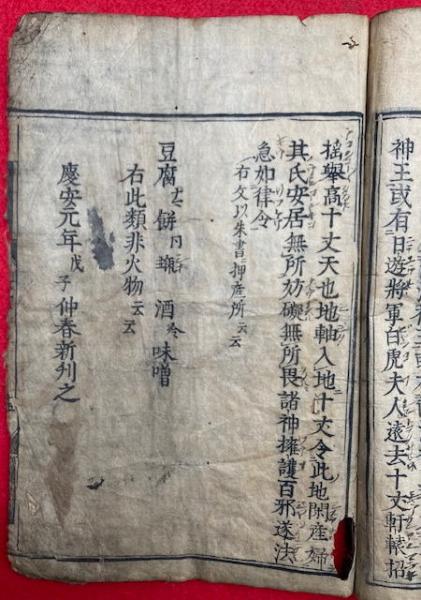 神王或有日遊將軍白虎夫人遠去十丈軒轅招
搖舉高十丈天也地軸入地十丈令此地閑産婦
其氏安居無所妨礙無所畏諸神擁護百邪遂法
急如律令
右文以朱書押産所云云
豆腐 餅 酒冷 味噌
右此類非火物云云
慶安元年戊子仲春新刋之